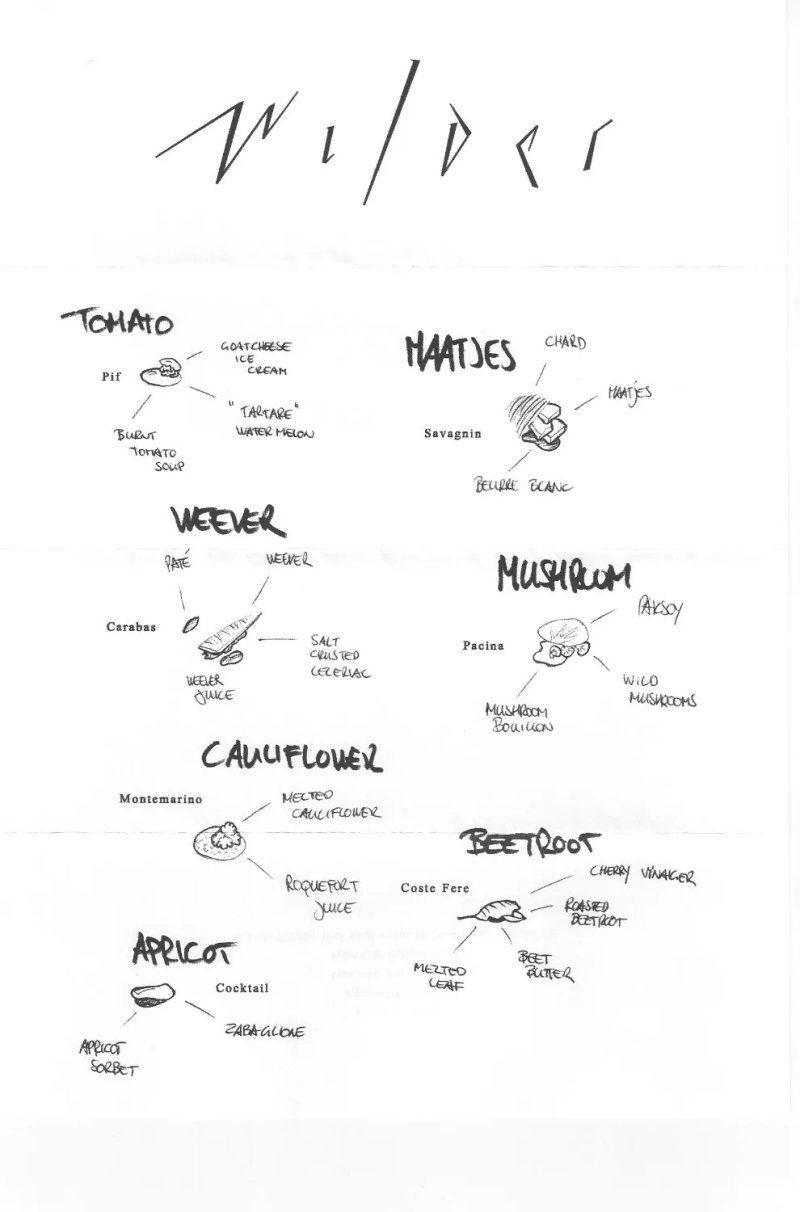 Wilder
TOMATO
Pif
GOATCHEESE
ICE
CREAM
"TARTARE"
WATERMELON
BURNT
TOMATO
SOUP
MAATJES
CHARD
MAATJES
Savagnin
BEURRE BLANC
WEEVER
PATÉ
WEEVER
Carabas
SALT
CRUSTED
CELERIAC
WEEVER
JUICE
MUSHROOM
PAKSOY
Pacina
WILD
MUSHROOMS
MUSHROOM
BOUILLON
CAULIFLOWER
Montemarino
MELTED
CAULIFLOWER
ROQUEFORT
JUICE
BEETROOT
CHERRY VINAIGER
Coste Fere
ROASTED
BEETROOT
MELTED
LEAF
BEET
BUTTER
APRICOT
Cocktail
ZABAGLIONE
APRICOT
SORBET